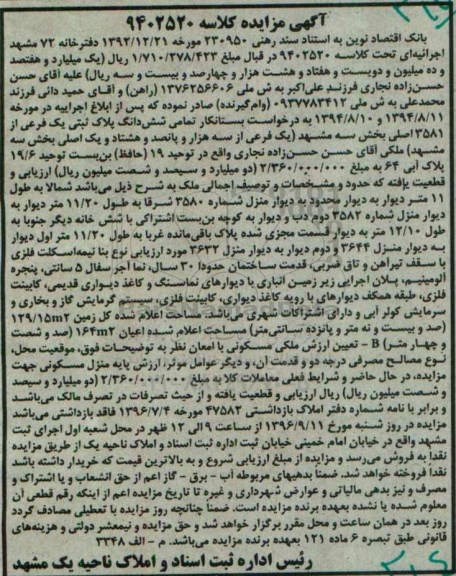 آگهی مزایده کلاسه ۹۴۰۲۵۲۰
بانک اقتصاد نوین به استناد سند رهنی ۲۳۰۹۵۰ مورخه ۱۳۹۲/۱۲/۲۱ دفترخانه ۷۲ مشهد
اجرائیه‌ای تحت کلاسه ۹۴۰۲۵۲۰ در قبال مبلغ ۱/۷۱۰/۲۷۸/۴۲۳ ریال (یک میلیارد و هفتصد
و ده میلیون و دویست و هفتاد و هشت هزار و چهارصد و بیست و سه ریال) علیه آقای حسن
حسن‌زاده نجاری فرزند علی‌اکبر به ش ملی ۱۳۷۶۲۵۶۶۰۶ (راهن) و آقای حمید دانی فرزند
محمدعلی به ش ملی ۰۹۳۷۷۸۳۴۱۲ (وام‌گیرنده) صادر نموده که پس از ابلاغ اجراییه در مورخه
۱۳۹۴/۸/۱۱ و ۱۳۹۴/۸/۱۰ به درخواست بستانکار تمامی شش‌دانگ پلاک ثبتی یک فرعی از
۳۵۸۱ اصلی بخش سه مشهد (یک فرعی از سه هزار و پانصد و هشتاد و یک اصلی بخش سه
مشهد) ملکی آقای حسن حسن‌زاده نجاری واقع در توحید ۱۹ (حافظ) بن‌بست توحید ۱۹/۶
پلاک آبی ۶۴ به مبلغ ۲/۳۶۰/۰۰۰/۰۰۰ (دو میلیارد و سیصد و شصت میلیون ریال) ارزیابی و
قطعیت یافته که حدود و مشخصات و توصیف اجمالی ملک به شرح ذیل می‌باشد شمالا به طول
۱۱ متر دیوار به دیوار محدود به دیوار منزل شماره ۳۵۸۰ شرقا به طول ۱۱/۲۰ متر دیوار به
دیوار منزل شماره ۳۵۸۲ دوم دب و دیوار به کوچه بن‌بست اشتراکی با شش خانه دیگر جنوبا به
طول ۱۲/۱۰ متر به دیوار قسمت مجزی شده پلاک باقی‌مانده غربا به طول ۱۱/۲۰ متر اول دیوار
به دیوار منزل ۳۶۴۴ و دوم دیوار به دیوار منزل ۳۶۳۲ مورد ارزیابی نوع بنا نیمه‌اسکلت فلزی
با سقف تیرآهن و تاق ضربی، قدمت ساختمان حدودا ۳۰ سال، نما آجر سفال ۵ سانتی، پنجره
آلومینیم، پلان اجرایی زیر زمین انباری با دیوارهای نماسنگ و کاغذ دیواری قدیمی، کابینت
فلزی، طبقه همکف دیوارهای با رویه کاغذ دیواری، کابینت فلزی، سیستم گرمایش گاز و بخاری و
سرمایش کولر آبی و دارای اشتراکات شهری می‌باشد. مساحت اعلام شده کل زمین ۱۲۹/۱۵m2
(صد و بیست و نه متر و پانزده سانتی‌متر) مساحت اعلام شده اعیان ۱۶۴m2 (صد و شصت
و چهار متر) B – تعیین ارزش ملکی مسکونی با امعان نظر به توضیحات فوق، موقعیت محل،
نوع مصالح مصرفی درجه دو و قدمت آن، و دیگر عوامل موثر، ارزش پایه منزل مسکونی جهت
مزایده، در حال حاضر و شرایط فعلی معاملات کلا به مبلغ ۲/۳۶۰/۰۰۰/۰۰۰ (دو میلیارد و سیصد
و شصت میلیون ریال) ریال ارزیابی و قطعیت یافته و از حیث تصرفات در تصرف مالک می‌باشد
و برابر با نامه شماره دفتر املاک بازداشتی ۴۷۵۸۲ مورخه ۱۳۹۶/۷/۴ فاقد بازداشتی می‌باشد
مزایده در روز شنبه مورخ ۱۳۹۶/۹/۱۱ از ساعت ۹ الی ۱۲ ظهر در محل شعبه اول اجرای ثبت
مشهد واقع در خیابان امام خمینی خیابان ثبت اداره ثبت اسناد و املاک ناحیه یک از طریق مزایده
نقدا به فروش می‌رسد و مزایده از مبلغ ارزیابی شروع و به بالاترین قیمت که خریدار داشته باشد
نقدا فروخته خواهد شد. ضمنا بدهیهای مربوطه آب – برق – گاز اعم از حق انشعاب و یا اشتراک و
مصرف و نیز بدهی مالیاتی و عوارض شهرداری و غیره تا تاریخ مزایده اعم از اینکه رقم قطعی آن
معلوم شده یا نشده بعهده برنده مزایده است. ضمنا چنانچه روز مزایده با تعطیلی مصادف گردد
روز بعد در همان ساعت و محل مقرر برگزار خواهد شد و حق مزایده و نیم‌عشر دولتی و هزینه‌های
قانونی طبق تبصره ۶ ماده ۱۲۱ بعهده برنده مزایده می‌باشد. م – الف ۳۳۴۸
رئیس اداره ثبت اسناد و املاک ناحیه یک مشهد